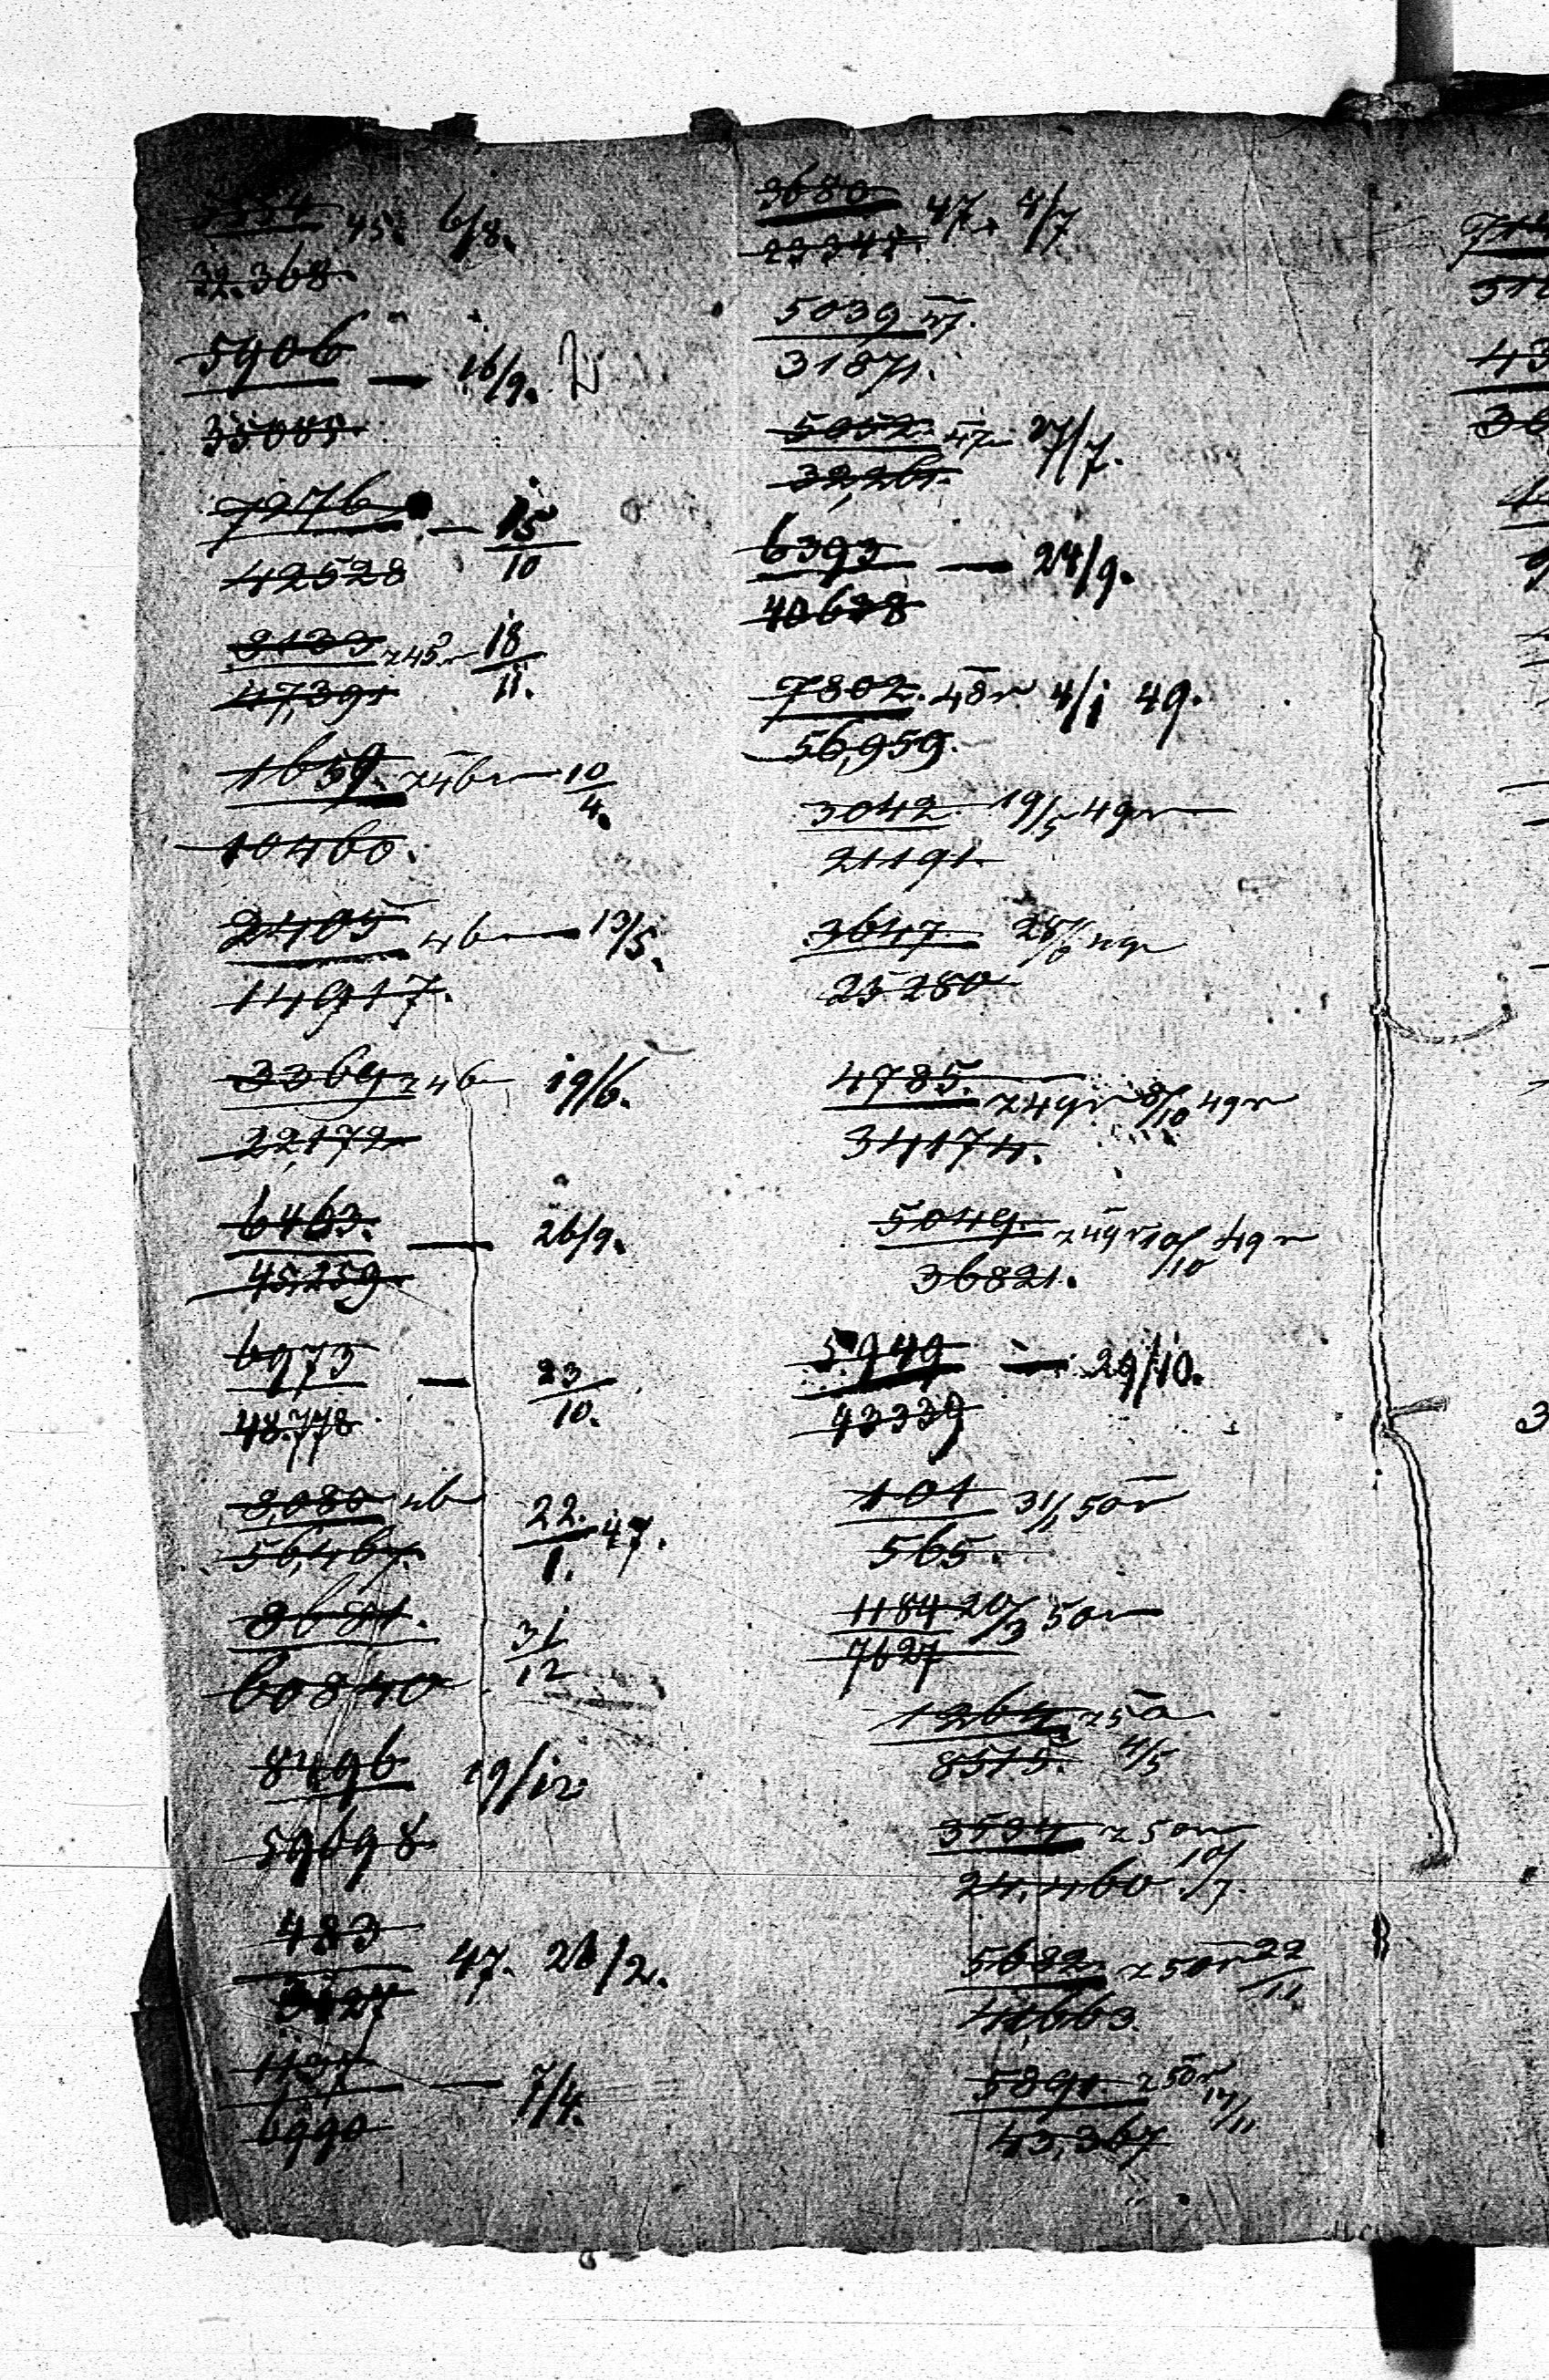 5554 45. 6/8.
32.368.
5906 — 16/9.
35085.
7276 — 15/10
42528
8133 z 45 r 18/11.
47,391
1659. z 46 r — 10/4.
10460.
2405 46 — 13/5.
14917.
3369 z 46 19/6.
22,172
6463. — 26/9.
45,259
6973 — 23/10.
48.778
8,080 46 22./1. 47.
56,467.
8681. 31/12
60840
8496 19/12
59698.
483 47. 26/2.
3127
1137 — 7/4.
6990
3680 47. 4/7
23348.
5039 47.
31871.
5052. 47 27/7.
32,261.
6393 — 24/9.
40688
7802. 48 r 4/1 49.
56,959.
3042 19/5 49 r
21191.
3647 49 r
25280
4785. z 49 r 8/10 49 r
34174.
5049. z 49 r 10/10 49 r
36821.
5949 — 29/10.
43339
101 31/1 50 r
565.
1184 20/3 50 r
7627
1264 z 50
8515. 4/5
3534 z 50 r
24,460 10/7.
5682. z 50 r 22/11
41,663.
5891. z 50 r 17/11
43,367